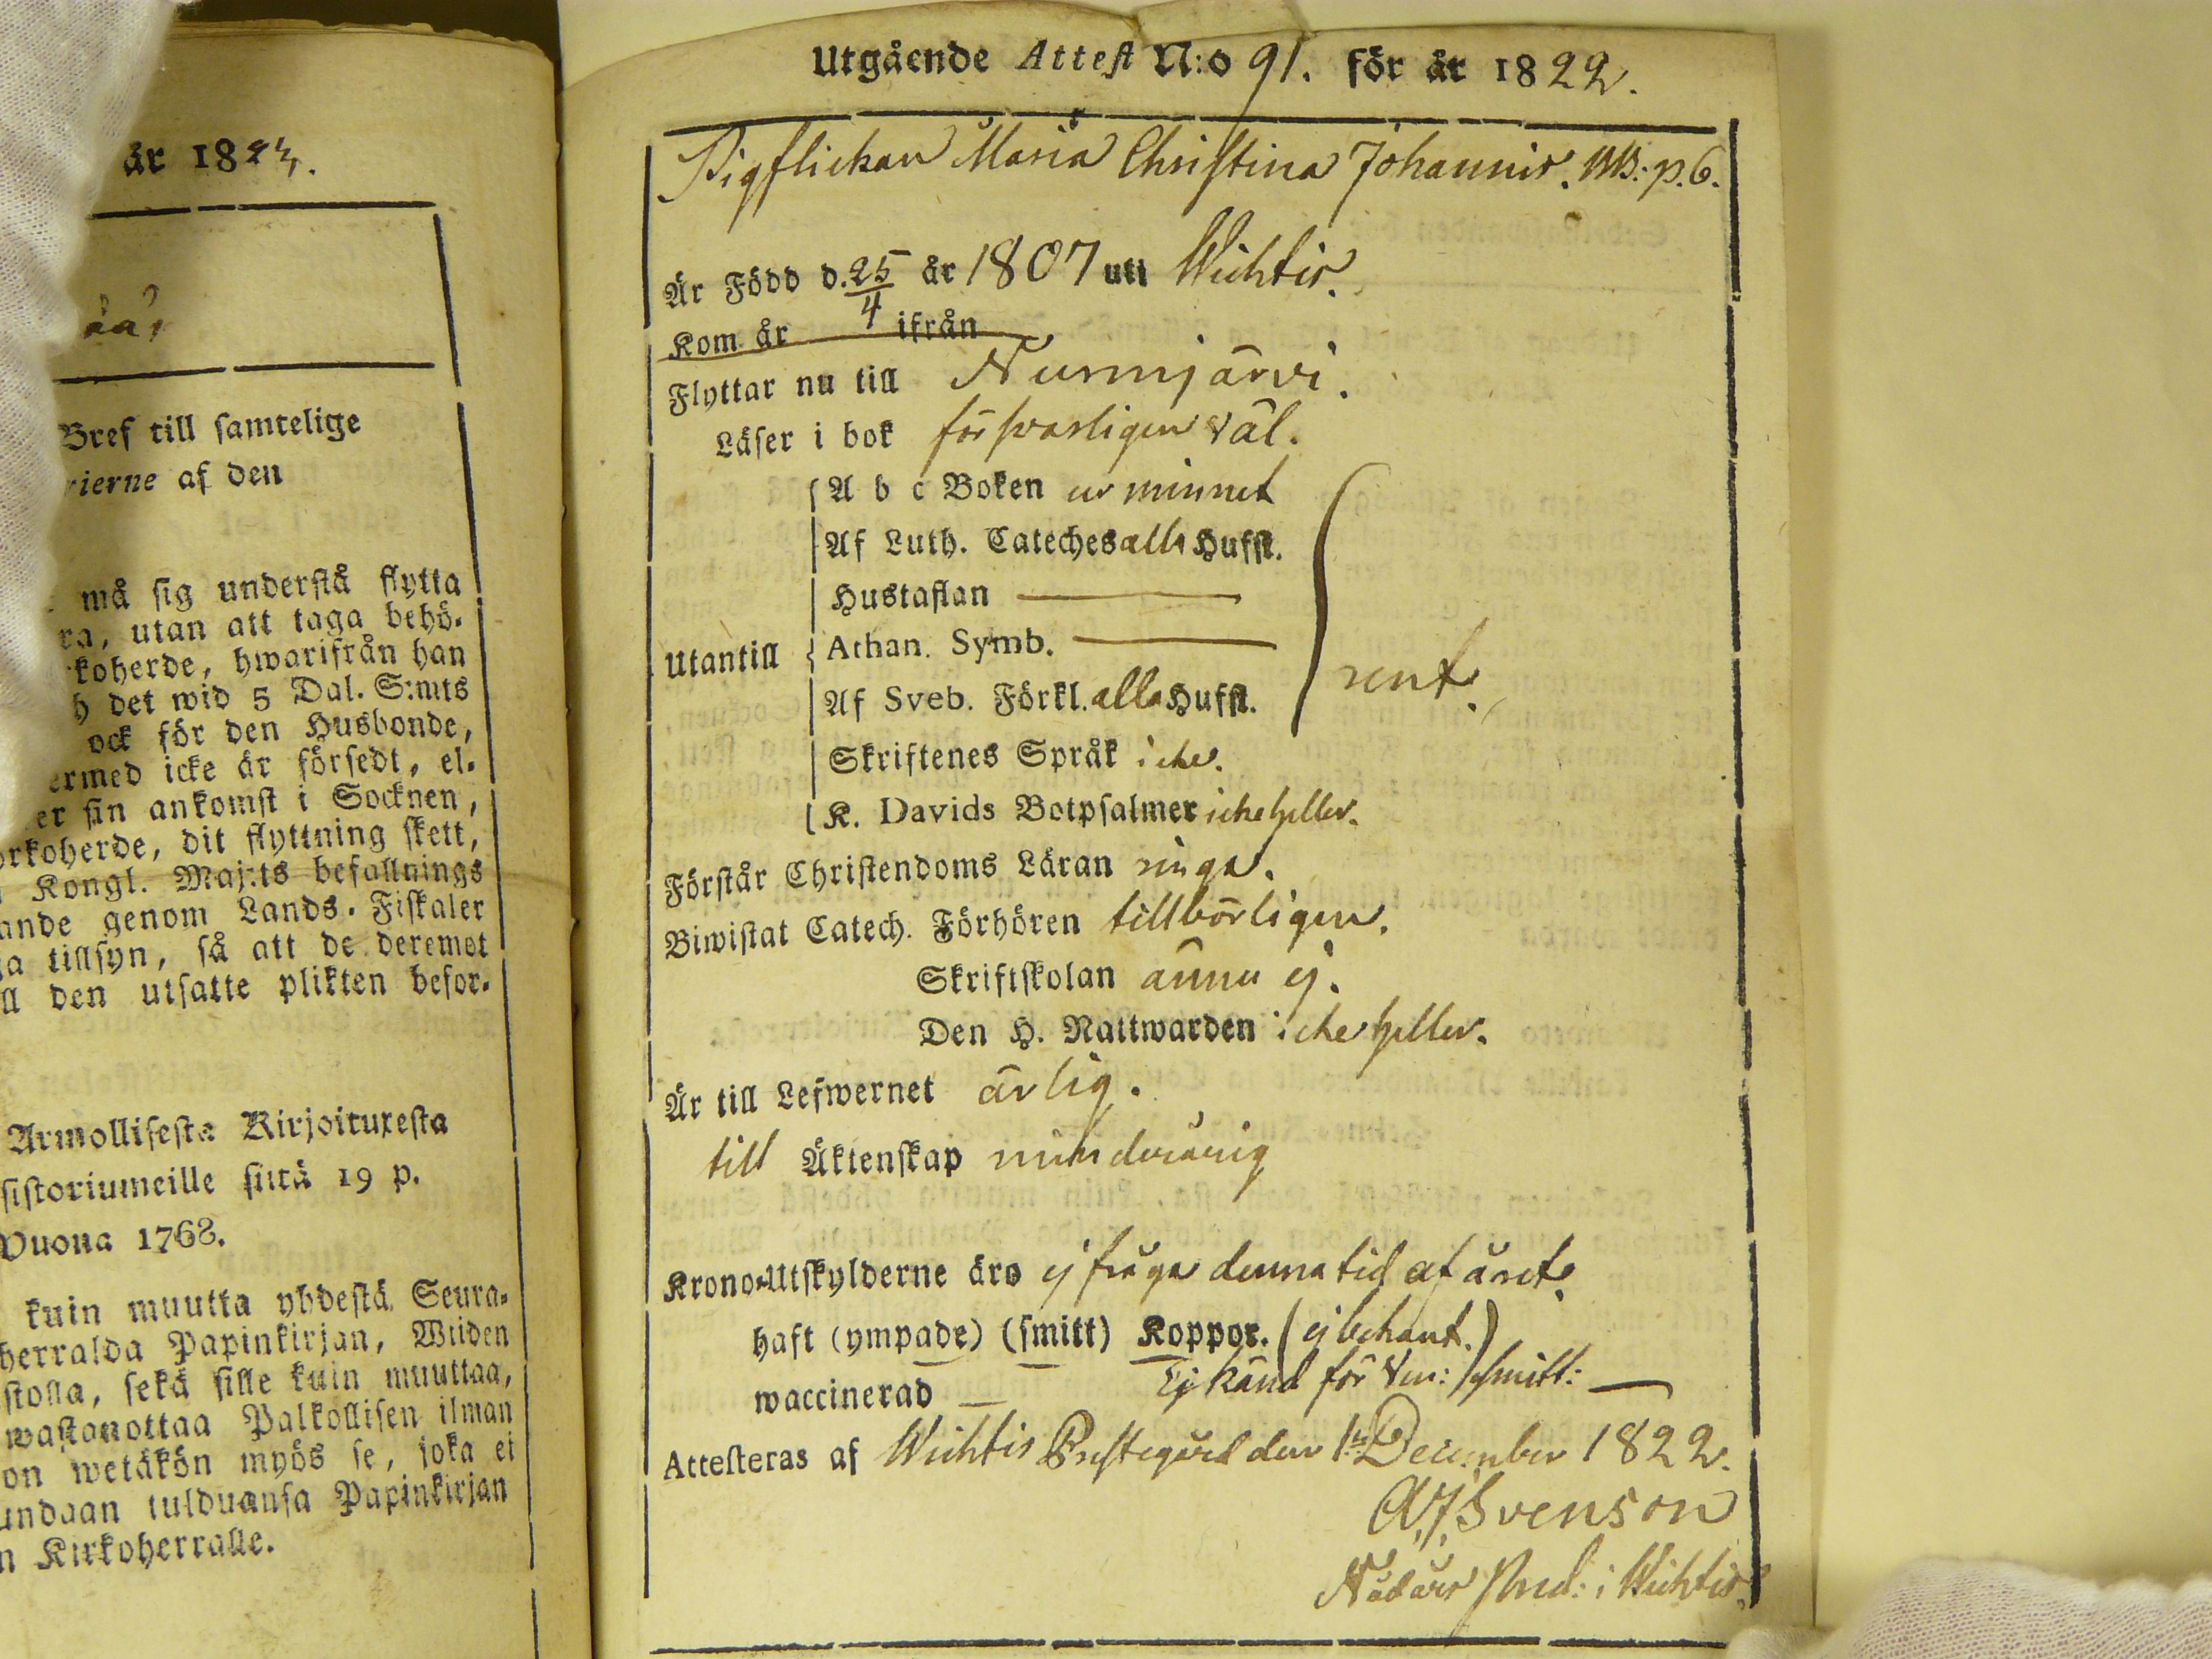 år 1823.
Bref till samtelige
rierne af den
må sig understå flytta
ra, utan att taga behö-
koherde, hwarifrån han
h det wid 5 Dal. S:mts
ock för den Husbonde,
ermed icke är försedt, el-
er sin ankomst i Socknen,
orkoherde, dit flyttning skett,
Kongl. Maj:ts befallnings
ande genom Lands-Fiskaler
a tillsyn, så att de deremot
ll den utsatte plikten befor-
Armollisesta Kirjoituxesta
sistoriumeille siitä 19 p.
Vuona 1768.
kuin muutta yhdestä Seura-
herralda Papinkirjan, Wiiden
stolla, sekä sille kuin muuttaa,
wastanottaa Palkollisen ilman
on wetäkön myös se, joka ei
undaan tulduansa Papinkirjan
n Kirkoherralle.
Utgående Attest N:o 91. för år 1822.
Pigflickan Maria Christina Johannis. MB: p. 6.
Är Född d. 25/4 år 1807 uti Wichtis.
Kom år ifrån
Flyttar nu till Nurmijärvi.
Läser i bok försvarligen väl.
Utantill
A b c Boken ur minnet
Af Luth. Cateches alla Hufst.
Hustaflan —
Athan. Symb. —
Af Sveb. Förkl. alla Hufst. rent.
Skriftenes Språk icke.
K. Davids Botpsalmer icke heller.
Förstår Christendoms Läran ringa.
Biwistat Catech. Förhören tillbörligen.
Skriftskolan ännu ej.
Den H. Nattwarden icke heller.
Är till Lefwernet ärlig.
till Äktenskap minderårig
Krono-Utskylderne äro ej fråga denna tid af året.
haft (ympade) (smitt) Koppor. (ej bekant.)
waccinerad — Ej känd för Ven: smitt: —
Attesteras af Wichtis Prestegård den 1 December 1822.
A. J. Svenson
Nådårs Pred: i Wichtis.